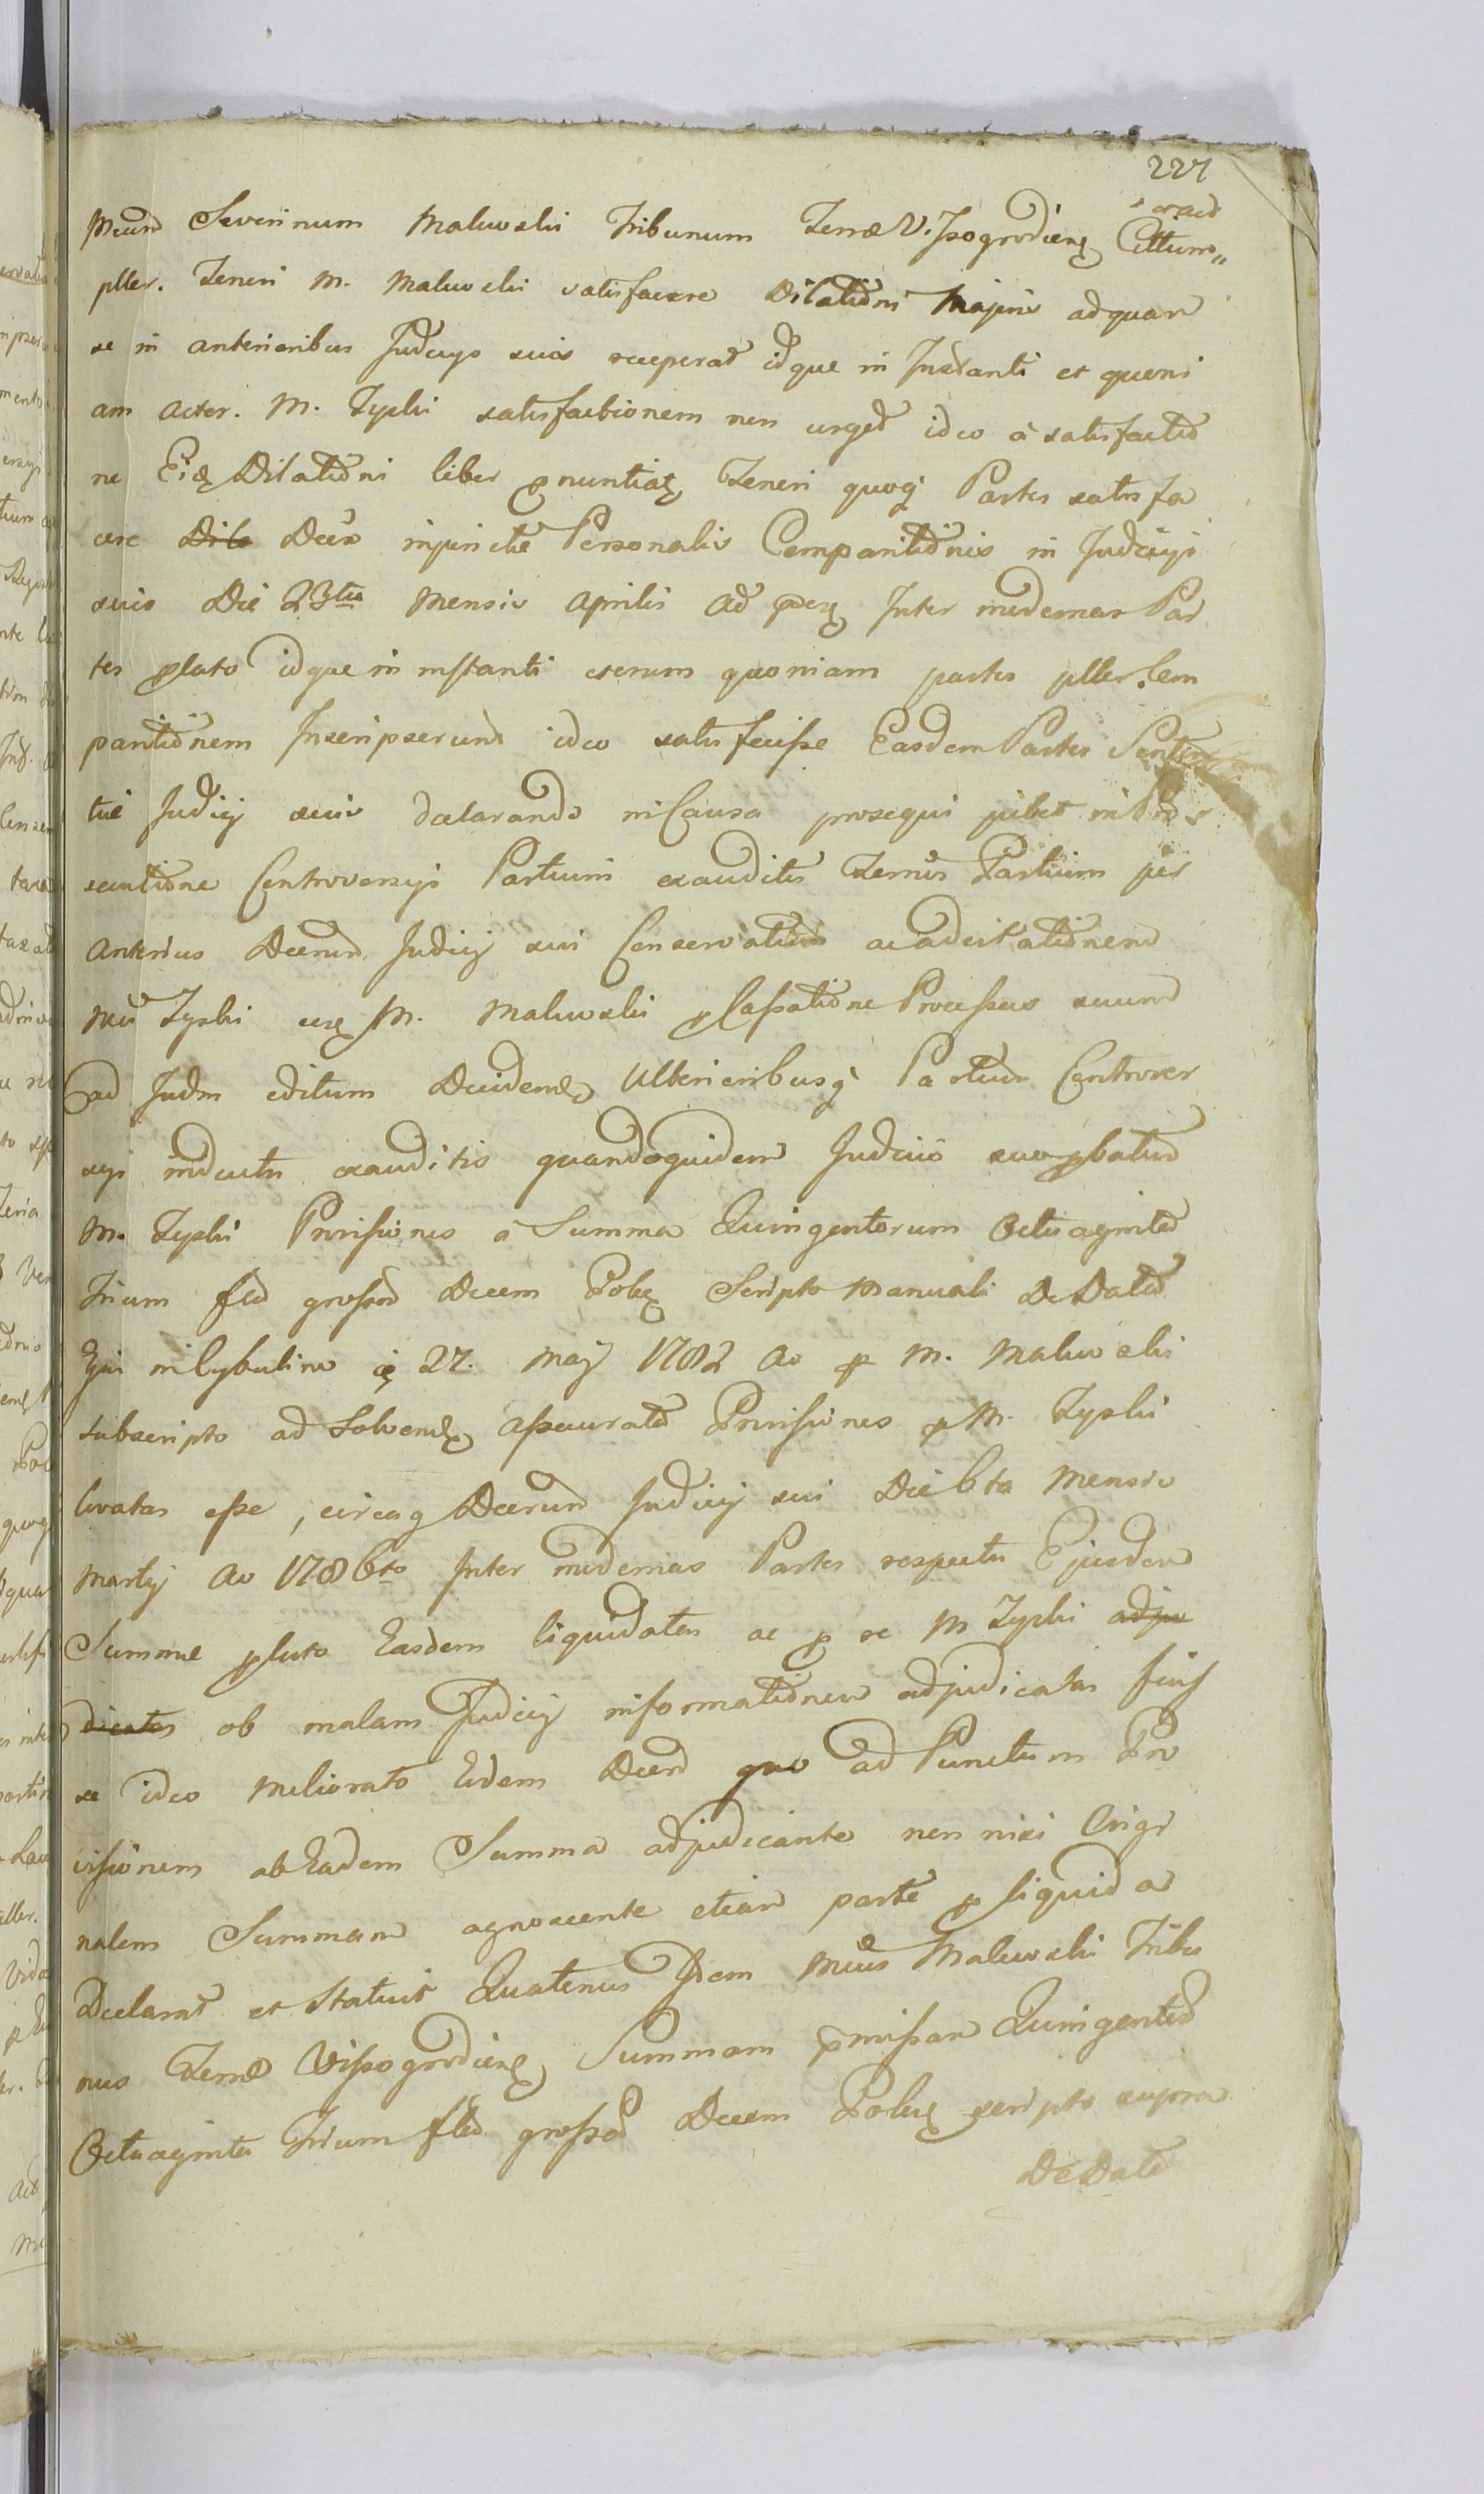 227
Mcum Severinum Malewski Tribunum Terræ Vissogrodiens Cittum
pller. Teneri M. Malewski satisfacere Dilationi Majori ad quam
se in anterioribus Judicijs suis receperat idque in Instanti et quoni
am Actor. M. Zyski satisfactionem non urged ideo á satisfactio
ne Eid Dilationi liber pnuntiat, Teneri quoq Partes satisfa
cere Dilo Decr injunctæ Personalis Comparitionis in Judicijs
suis Die 23tia Mensis Aprilis Ad Inter medemas Par
tes plato idque in instanti eterum quoniam partes pller. Com
paritionem Inscripserunt ideo satisfecisse Easdem Partes Senten
tiæ Judicij sui declarando in Causa prosequi jubet in
secutione Controversijs Partium exauditis Terminis Partium per
anterius Decrum Judicij sui Conservatum ac adcitationem
Mci Zyski M. Malewski p Cassatione Processus suum
ad Judm editum Decidend, Ulterioribusq Partium Controver
sijs inductis exauditis quandoquidem Judicio suo pbatum
M. Zyski Provisiones á Summa Quingentorum Octuaginta
Trium fln grossor Decem Pol Scripto Manuali De Data
Ejus in Cybulino 27. Maij 1782 Ao p M. Malewski
subscripto ad Solvend assecurato Provisiones p M. Zyski
levatas esse, circaq Decrum Judicij sui Die 6ta Mensis
Martij Ao 1786to Inter medemas Partes respectu Ejusdem
Summæ plato Easdem liquidatas ac p se M Zyski adju
dicatas ob malam Judicij informationem adjudicatas fuis
se ideo Meliorato Eodem Decro quo ad Punctum Pro
visionem ab Eadem Summa adjudicante non nisi Origi
nalem Summam agnoscente etiam parte p liquida
Declarat et Statuit Quatenus Idem Mcus Malewski Tribu
nus Terræ Vissogrodiens Summam pmissam Quingentor
Octuaginta Trium fln grossor Decem Pol scripto supra
De Data